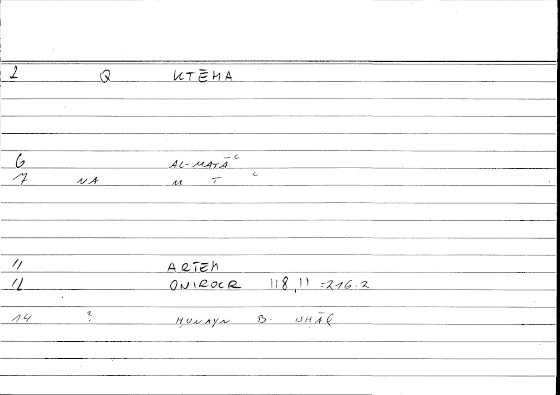 2 Q KTĒMA
6 AL-MATĀʿ
7 NA M T ʿ
11 ARTEM
12 ONIROCR 118,11 =216.2
14 ? ḤUNAYN B. ISḤĀQ